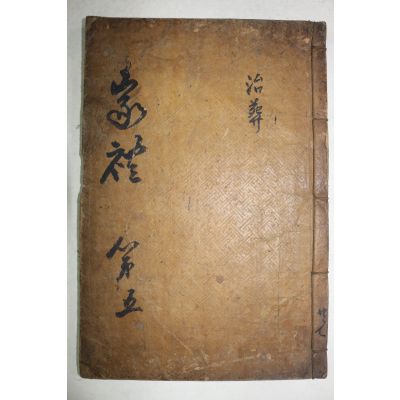 治葬
家禮
第五